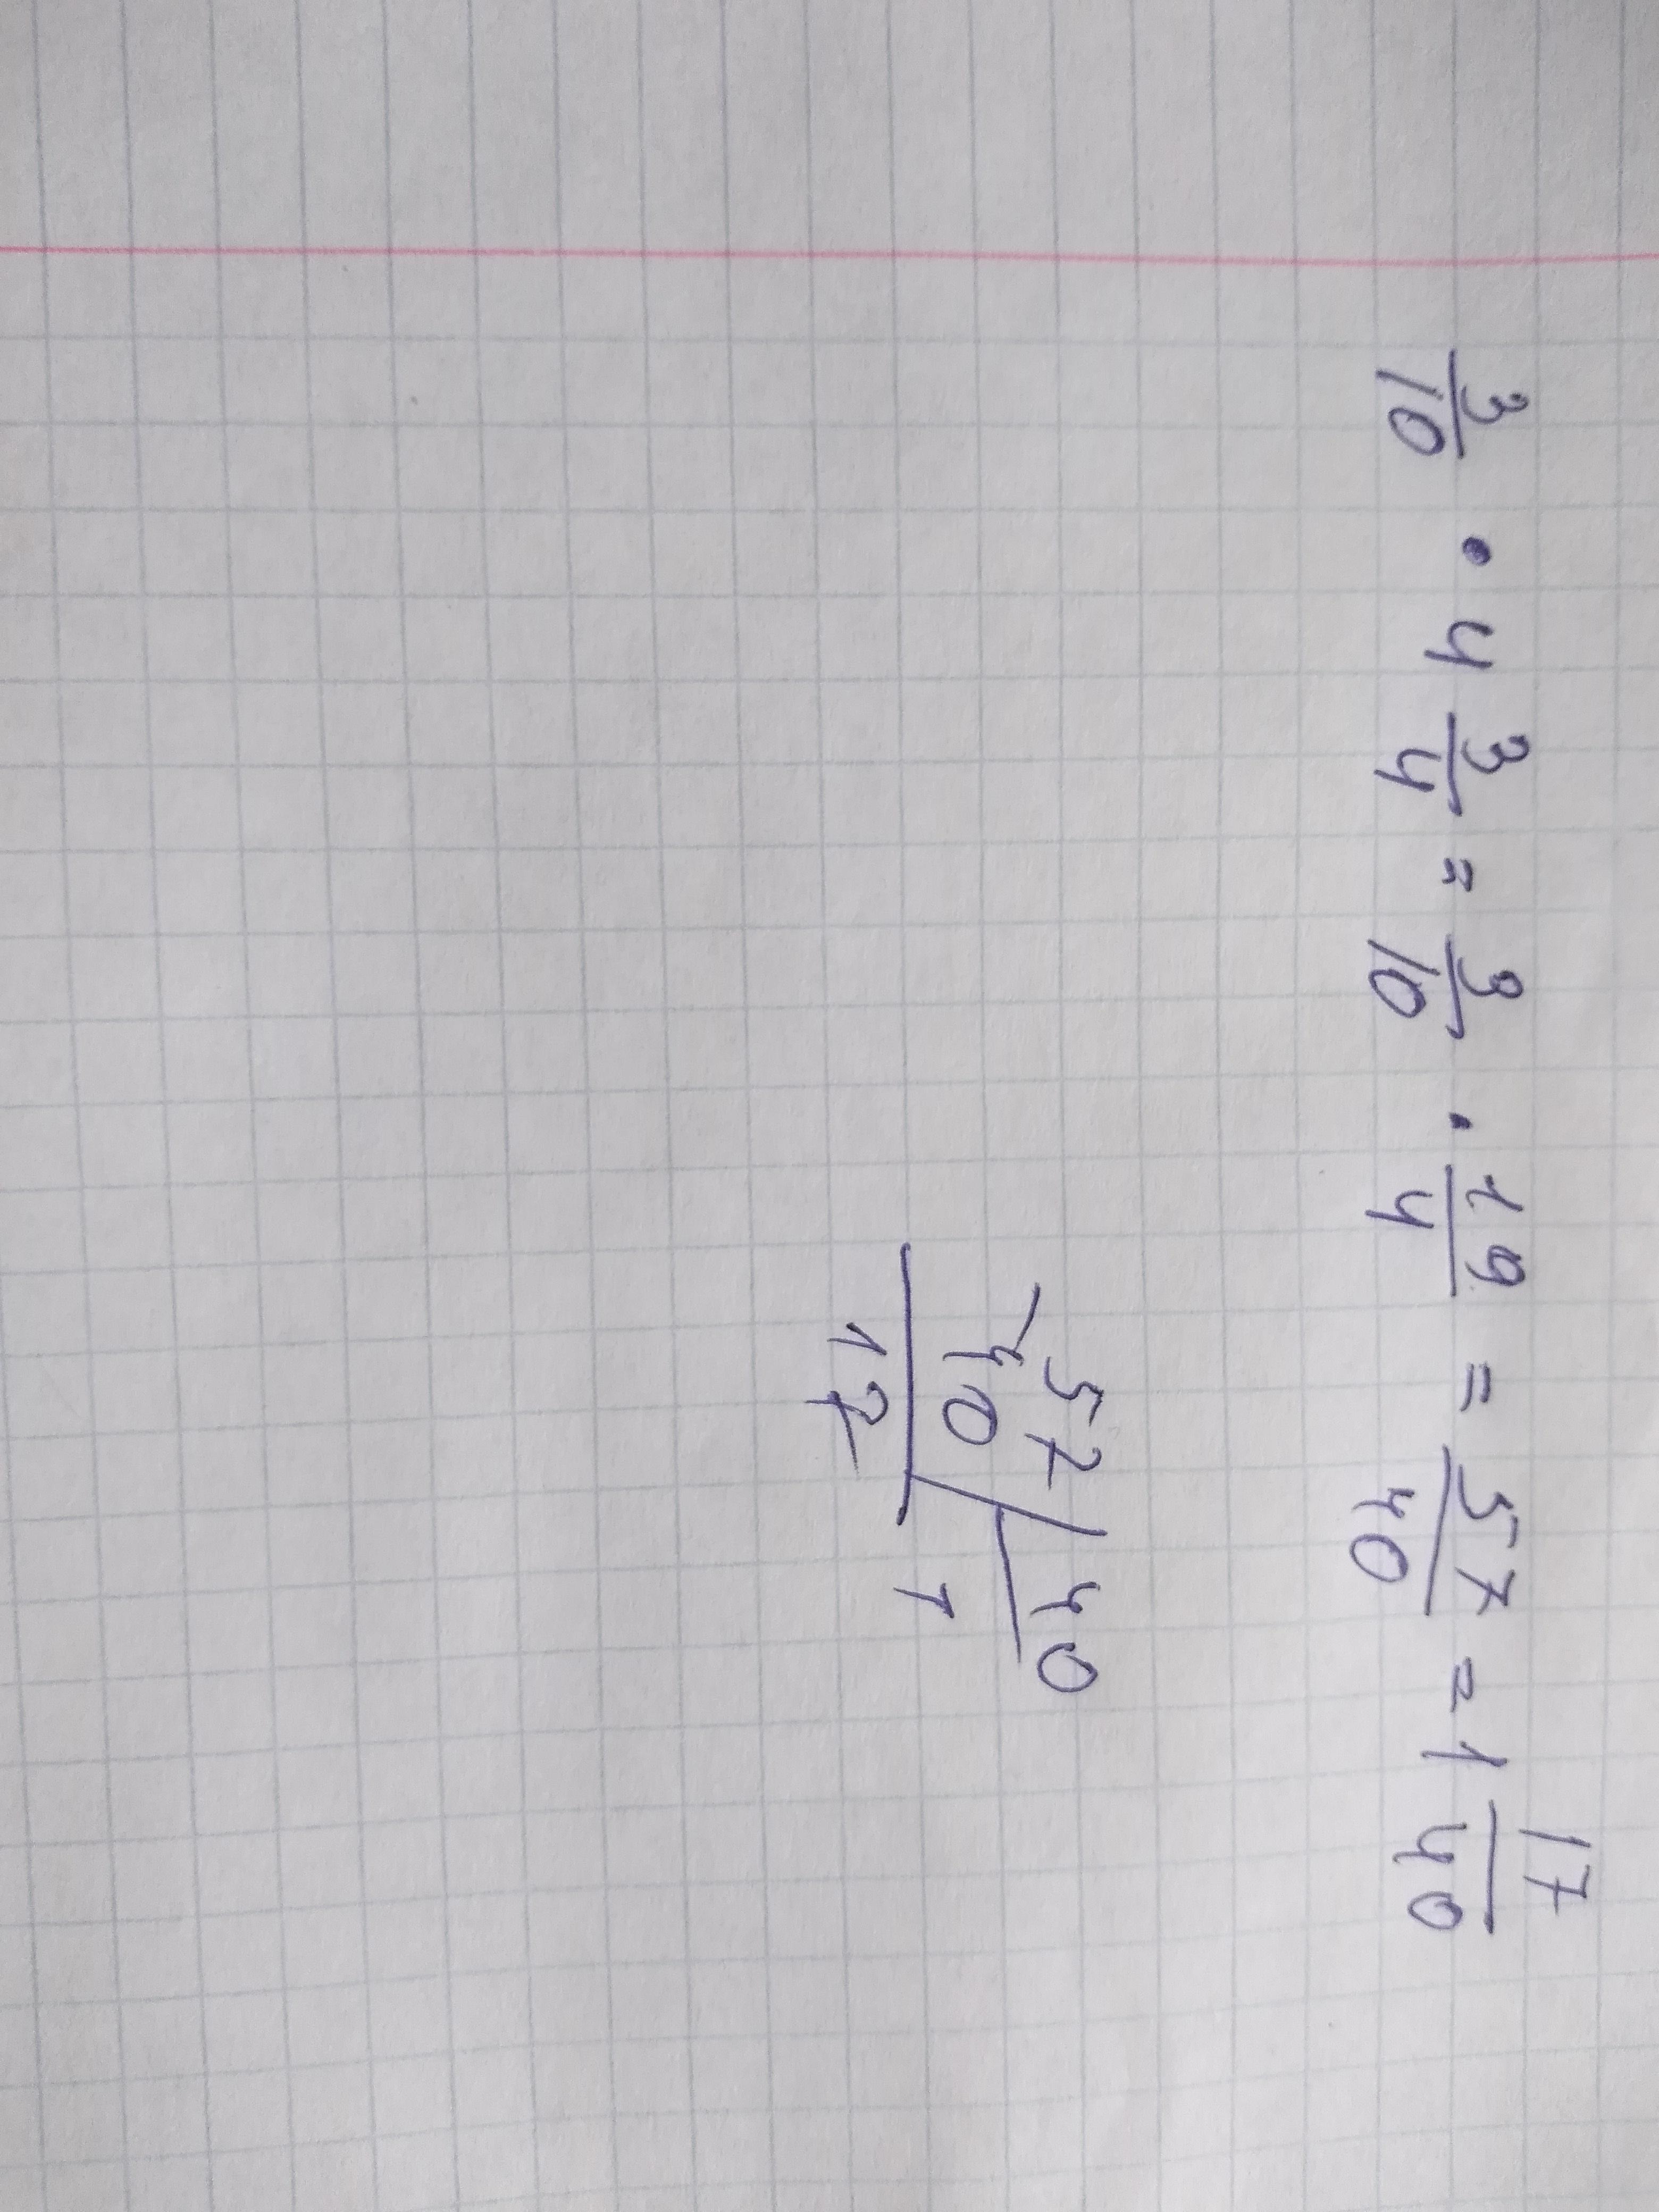 3/10 · 4 3/4 = 3/10 · 19/4 = 57/40 = 1 17/40
57 | 40
- 40 | 1
17